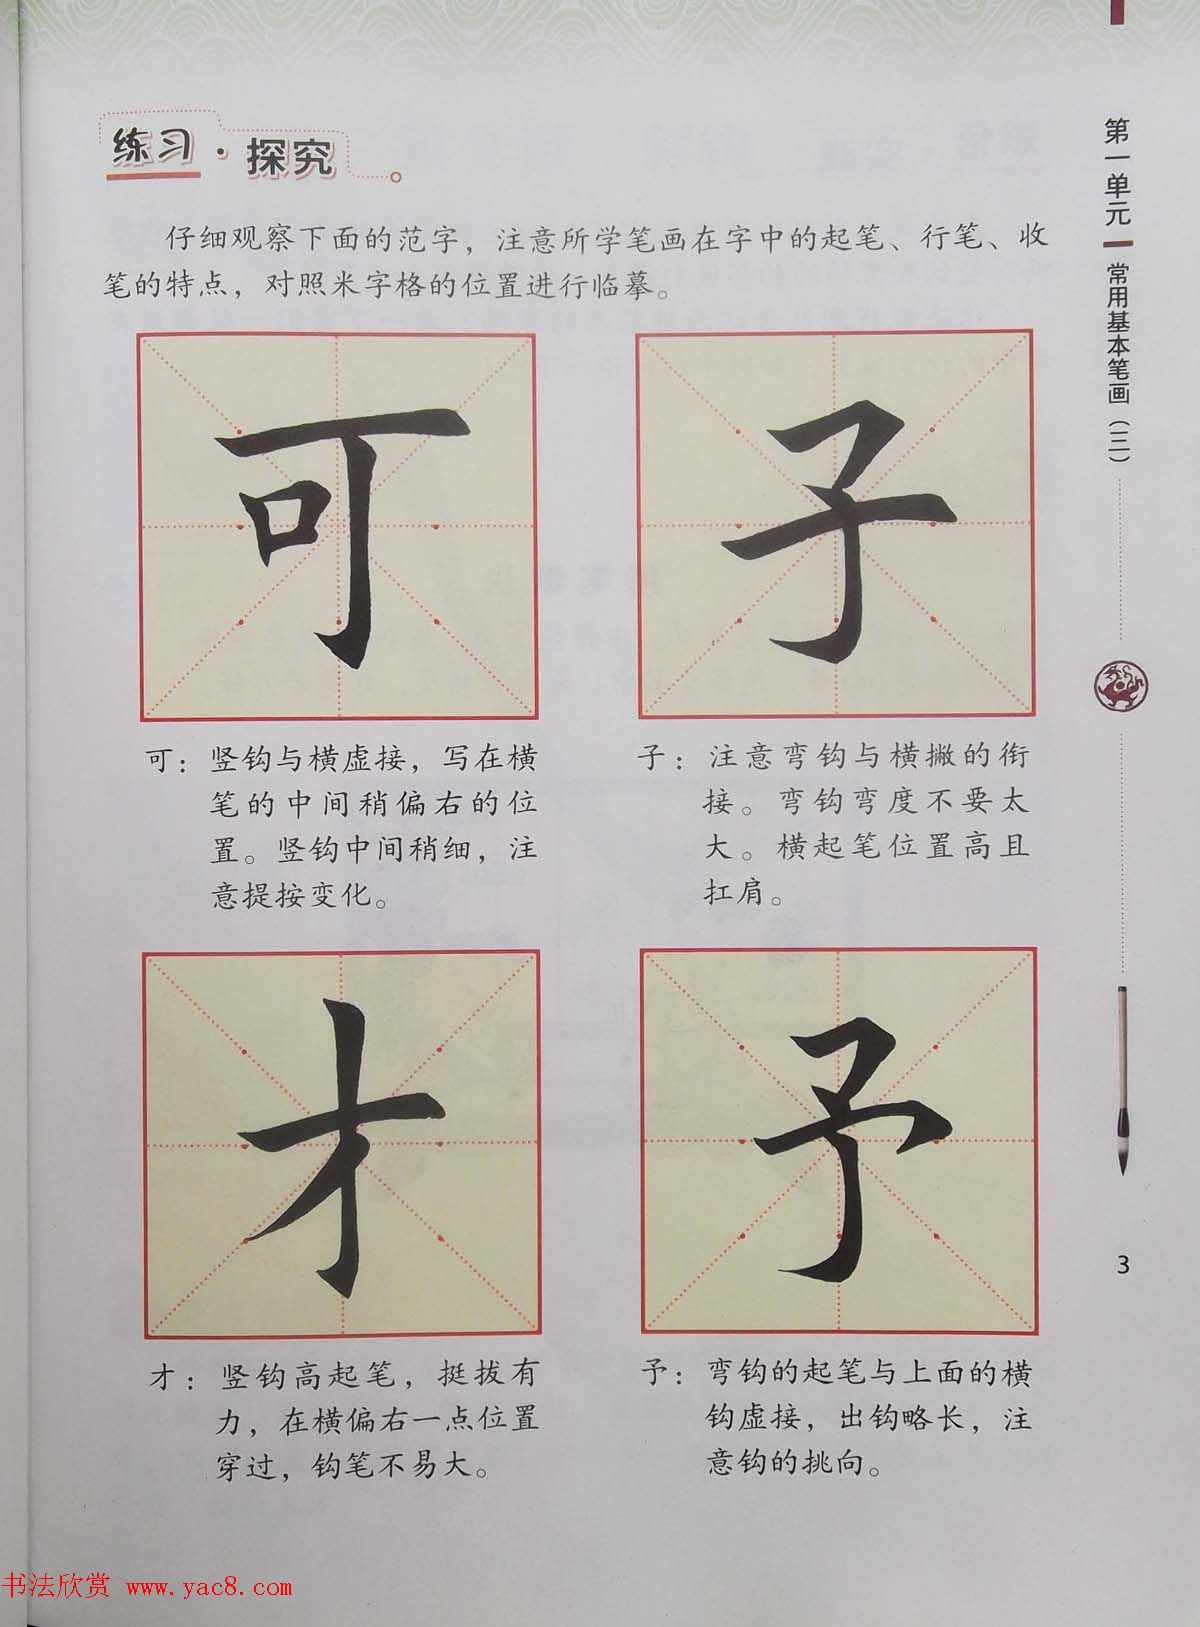 练习·探究
仔细观察下面的范字，注意所学笔画在字中的起笔、行笔、收
笔的特点，对照米字格的位置进行临摹。
可
可：竖钩与横虚接，写在横
笔的中间稍偏右的位
置。竖钩中间稍细，注
意提按变化。
子
子：注意弯钩与横撇的衔
接。弯钩弯度不要太
大。横起笔位置高且
扛肩。
才
才：竖钩高起笔，挺拔有
力，在横偏右一点位置
穿过，钩笔不易大。
予
予：弯钩的起笔与上面的横
钩虚接，出钩略长，注
意钩的挑向。
第一单元 常用基本笔画（三）
3
书法欣赏 www.yac8.com